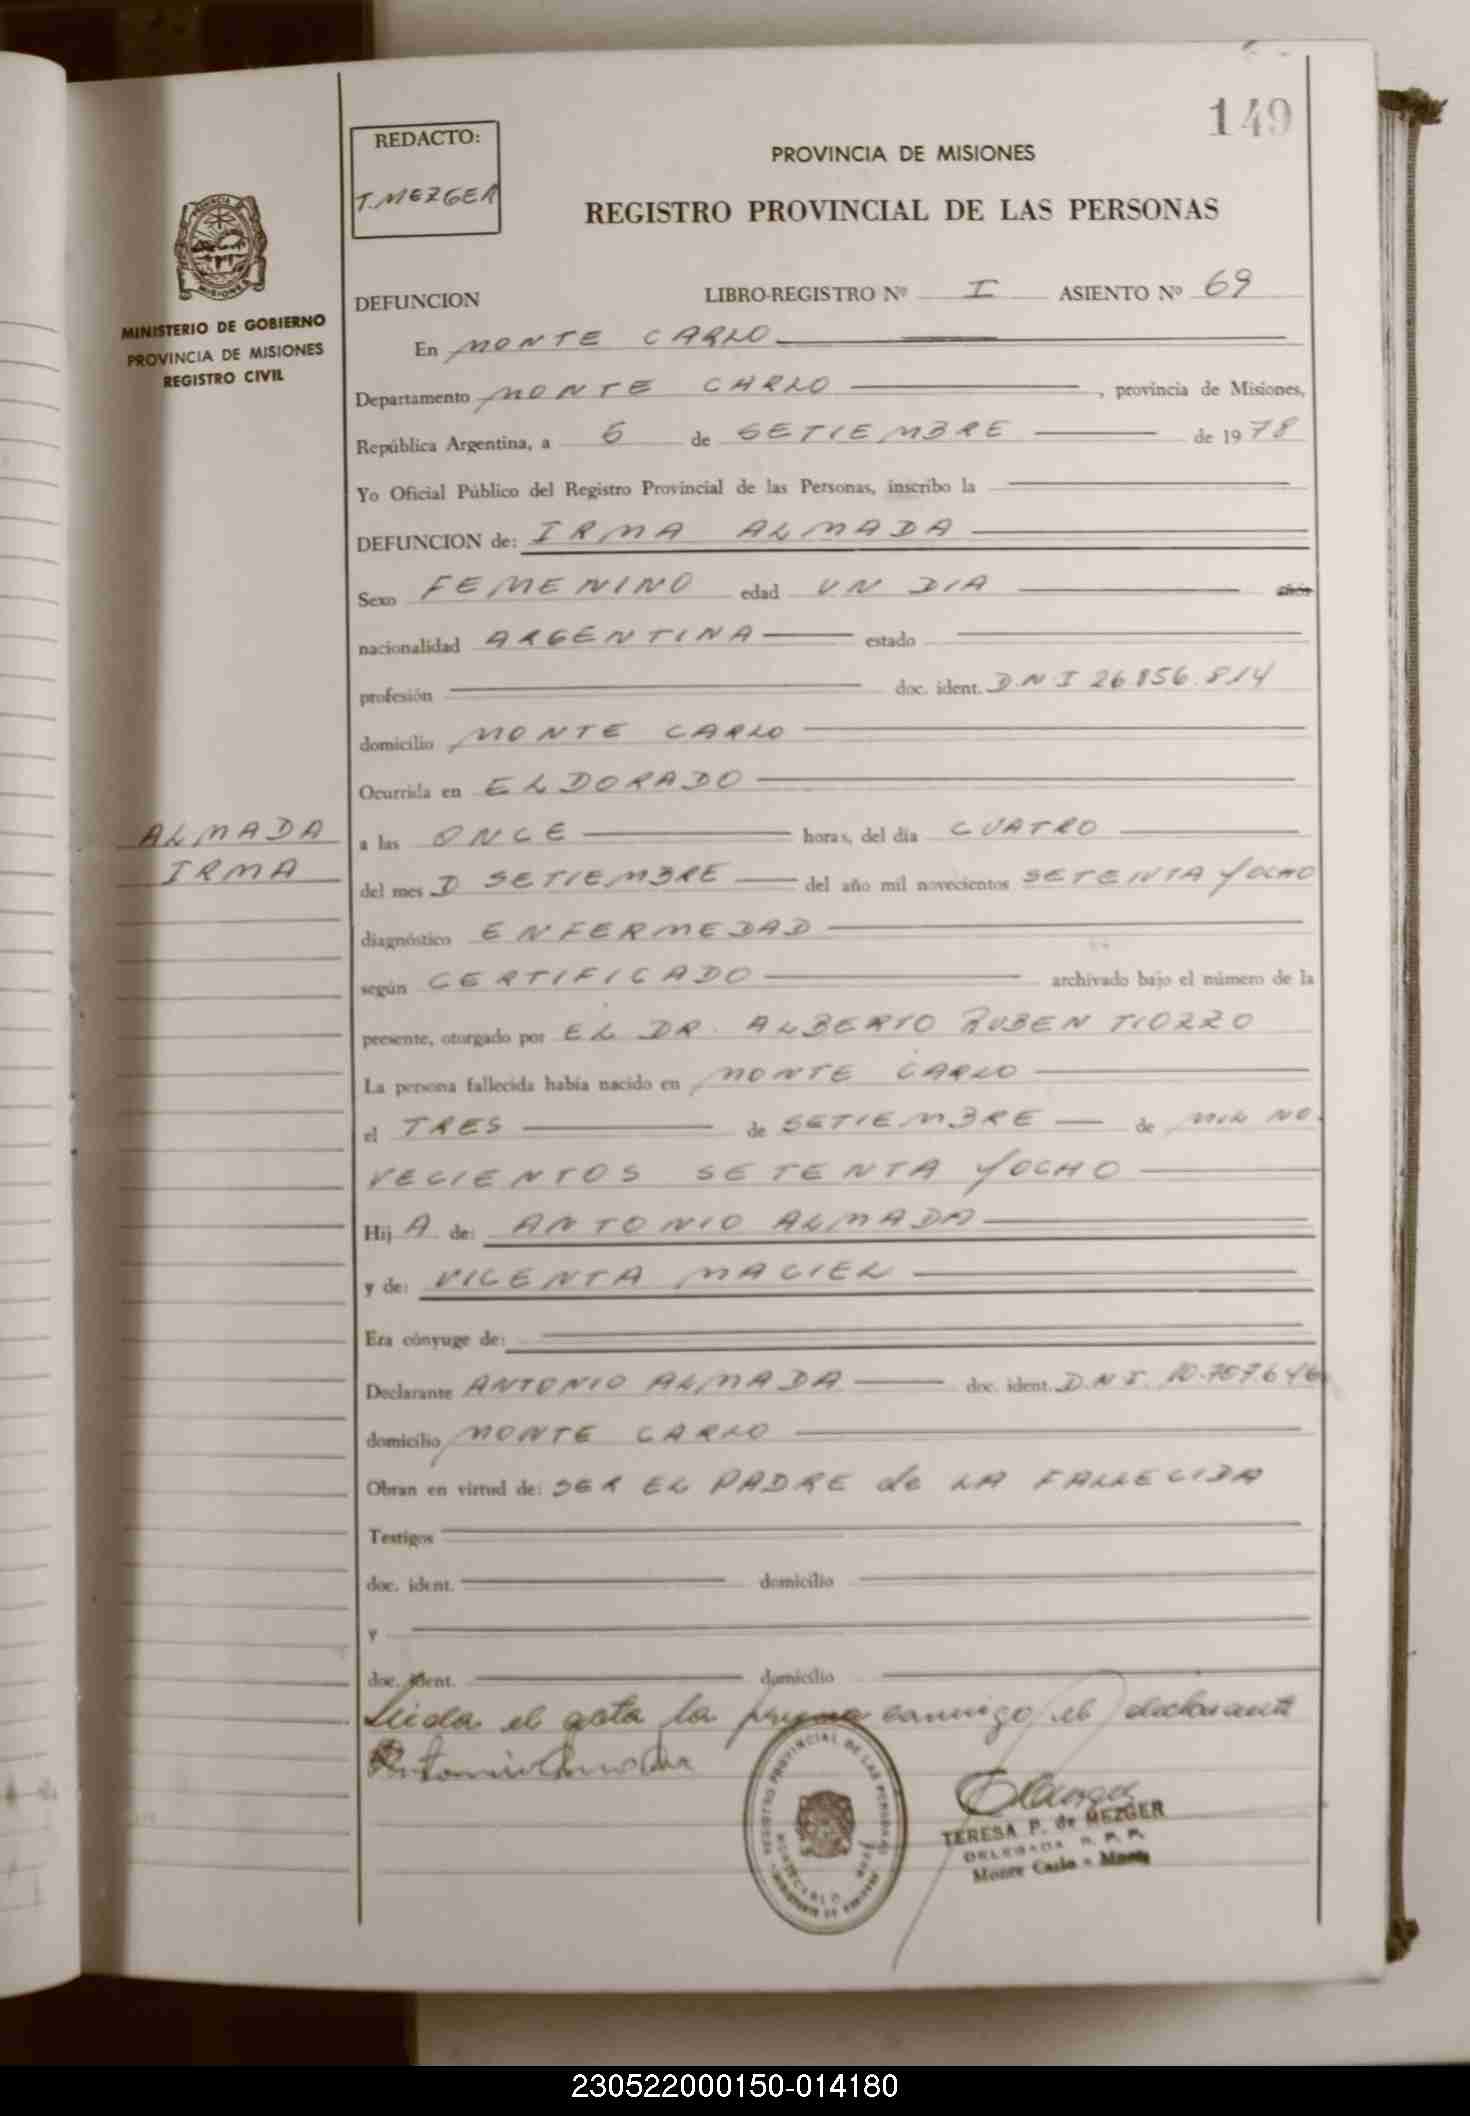 149
REDACTO:
T. MEZGER
PROVINCIA DE MISIONES
REGISTRO PROVINCIAL DE LAS PERSONAS
MINISTERIO DE GOBIERNO
PROVINCIA DE MISIONES
REGISTRO CIVIL
DEFUNCION LIBRO-REGISTRO Nº I ASIENTO Nº 69
En MONTE CARLO
Departamento MONTE CARLO, provincia de Misiones,
República Argentina, a 6 de SETIEMBRE de 1978
Yo Oficial Público del Registro Provincial de las Personas, inscribo la
DEFUNCION de: IRMA ALMADA
Sexo FEMENINO edad UN DIA años
nacionalidad ARGENTINA estado
profesión doc. ident. D.N.I 26.856.814
domicilio MONTE CARLO
Ocurrida en ELDORADO
ALMADA
IRMA
a las ONCE horas, del día CUATRO
del mes D SETIEMBRE del año mil novecientos SETENTA Y OCHO
diagnóstico ENFERMEDAD
según CERTIFICADO archivado bajo el número de la
presente, otorgado por EL DR. ALBERTO RUBEN TIOZZO
La persona fallecida había nacido en MONTE CARLO
el TRES de SETIEMBRE de MIL NO
VECIENTOS SETENTA Y OCHO
Hij A de: ANTONIO ALMADA
y de: VICENTA MACIEL
Era cónyuge de:
Declarante ANTONIO ALMADA doc. ident. D.N.I. 10.757.646
domicilio MONTE CARLO
Obran en virtud de: SER EL PADRE de LA FALLECIDA
Testigos
doc. ident. domicilio
y
doc. ident. domicilio
Leida el acta la firma conmigo el declarante
Antonio
REGISTRO PROVINCIAL DE LAS PERSONAS
TERESA P. de MEZGER
DELEGADA R. P. P.
Monte Carlo - Mnes
230522000150-014180